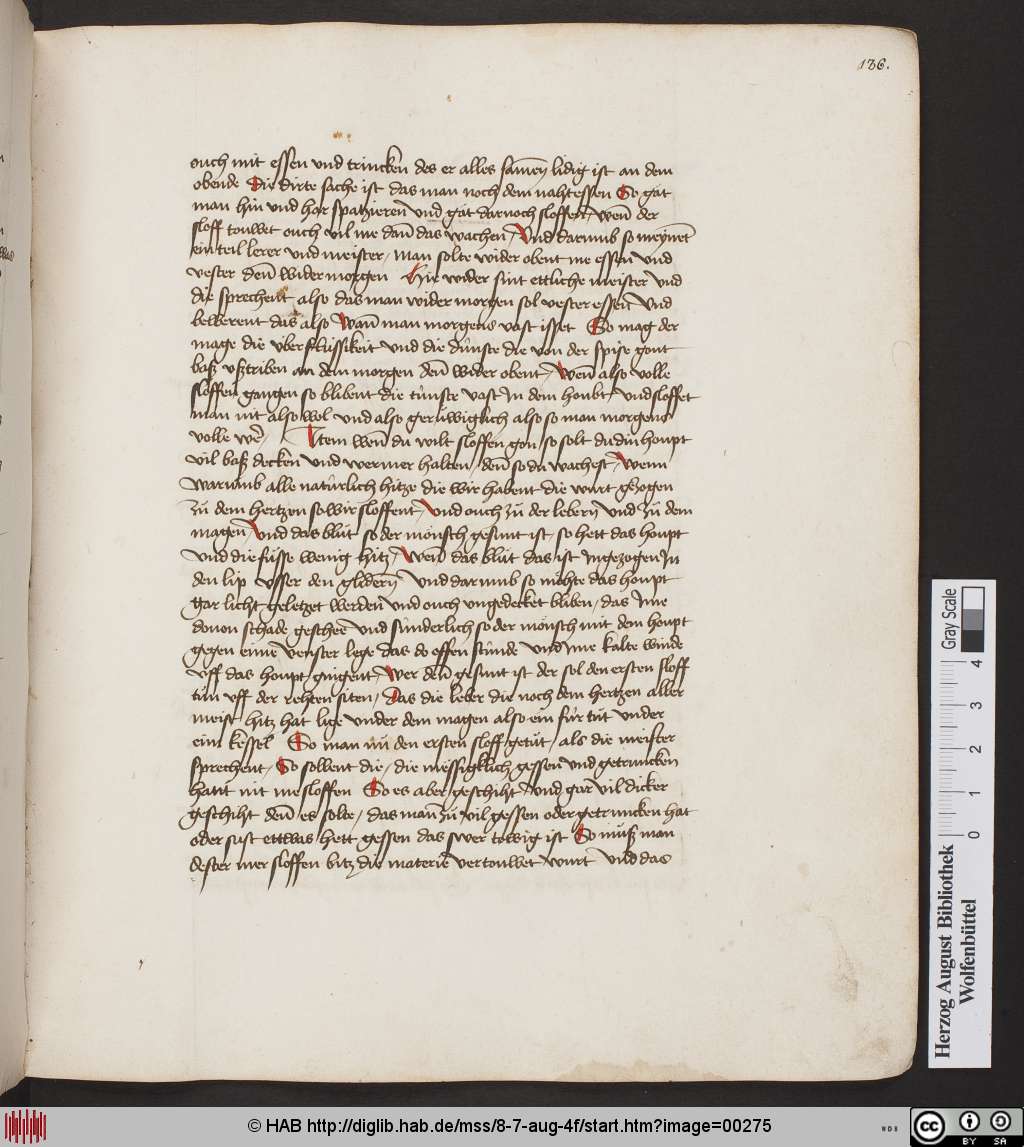 136.
ouch mit essen vnd trincken des er alles samen̄ lidig ist an dem
obende Die dirte sache ist das man noch dem nahtessen So gat
man hin vnd har spatzieren vnd gat darnoch sloffen / wen̄ der
sloff touwet ouch vil me dan̄ das wachen / Vnd darumb so meynet
ein teil lerer vnd meister / man solte wider obent me essen vnd
vester den̄ wider morgen Hie wider sint ettliche meister vnd
die sprechent also das man wider morgen sol vester essen vnd
bewerent das also Wan̄ man morgens vast isset So mag der
mage die überflüssikeit vnd die dünste die von der spise gont
baß vßtriben an dem morgen den̄ wider obent / Wen̄ also volle
sloffen gangen so blibent die tünste vast In dem houbt / vnd sloffet
man nit also wol vnd also gerüwiglich also so man morgens
volle wer̄ / Item wen̄ du wilt sloffen gon so solt du din houpt
vil baß decken vnd wermer halten / den̄ so du wachest / wenn
warumb alle natürlich hitze die wir habent die wurt gezogen
zü dem hertzen so wir sloffent / Vnd ouch zü der lebern̄ vnd zü dem
magen / Vnd das blüt so der mönsch gesunt ist / so hett das houpt
vnd die füsse wenig hitz / Wen̄ das blüt das ist Ingezogen In
den lip vsser den glidern̄ vnd darumb so möhte das houpt
gar licht geletzet werden vnd ouch vngedecket bliben / das Ime
douon schade geschee vnd sünderlich so der mönsch mit dem houpt
gegen eime venster lege das do offen stünde vnd Ime kalte winde
vff das houpt gingent / Wer den̄ gesunt ist der sol den ersten sloff
tün vff der rehten siten / Das die leber die noch dem hertzen aller
meist hitz hat lige vnder dem magen also ein für tüt vnder
eim kessel So man nü den ersten sloff getüt / als die meister
sprechent / So sollent die / die messigklich gessen vnd getruncken
hant nit me sloffen So es aber geschiht / vnd gar vil dicker
geschiht den̄ es solte / das man zü vil gessen oder getruncken hat
oder sust ettwas hett gessen das swer töwig ist So müß man
dester mer sloffen bitz die materie vertouwet wurt vnd das
Gray Scale
0 1 2 3 4
Herzog August Bibliothek
Wolfenbüttel
© HAB http://diglib.hab.de/mss/8-7-aug-4f/start.htm?image=00275
WDB
cc BY SA